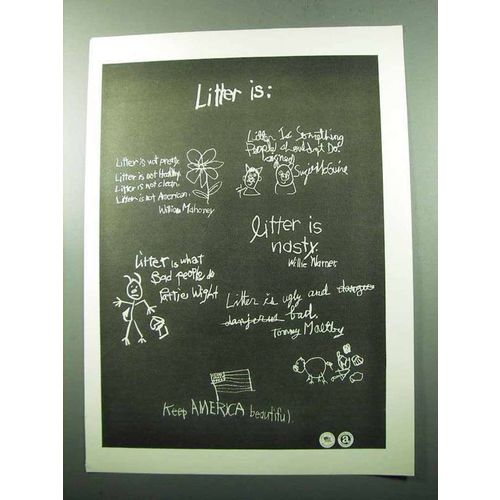 Litter is:
Litter is not pretty.
Litter is not Healthy.
Litter is not clean.
Litter is not American.
William Mahoney
Litter Is Something
People Shouldn't Do.
Susie McGuire
Litter is
nasty.
Willie Warner
Litter is what
Bad people do
Pattie Wight
Litter is ugly and
bad.
Tommy Maltby
Keep AMERICA beautiful
a